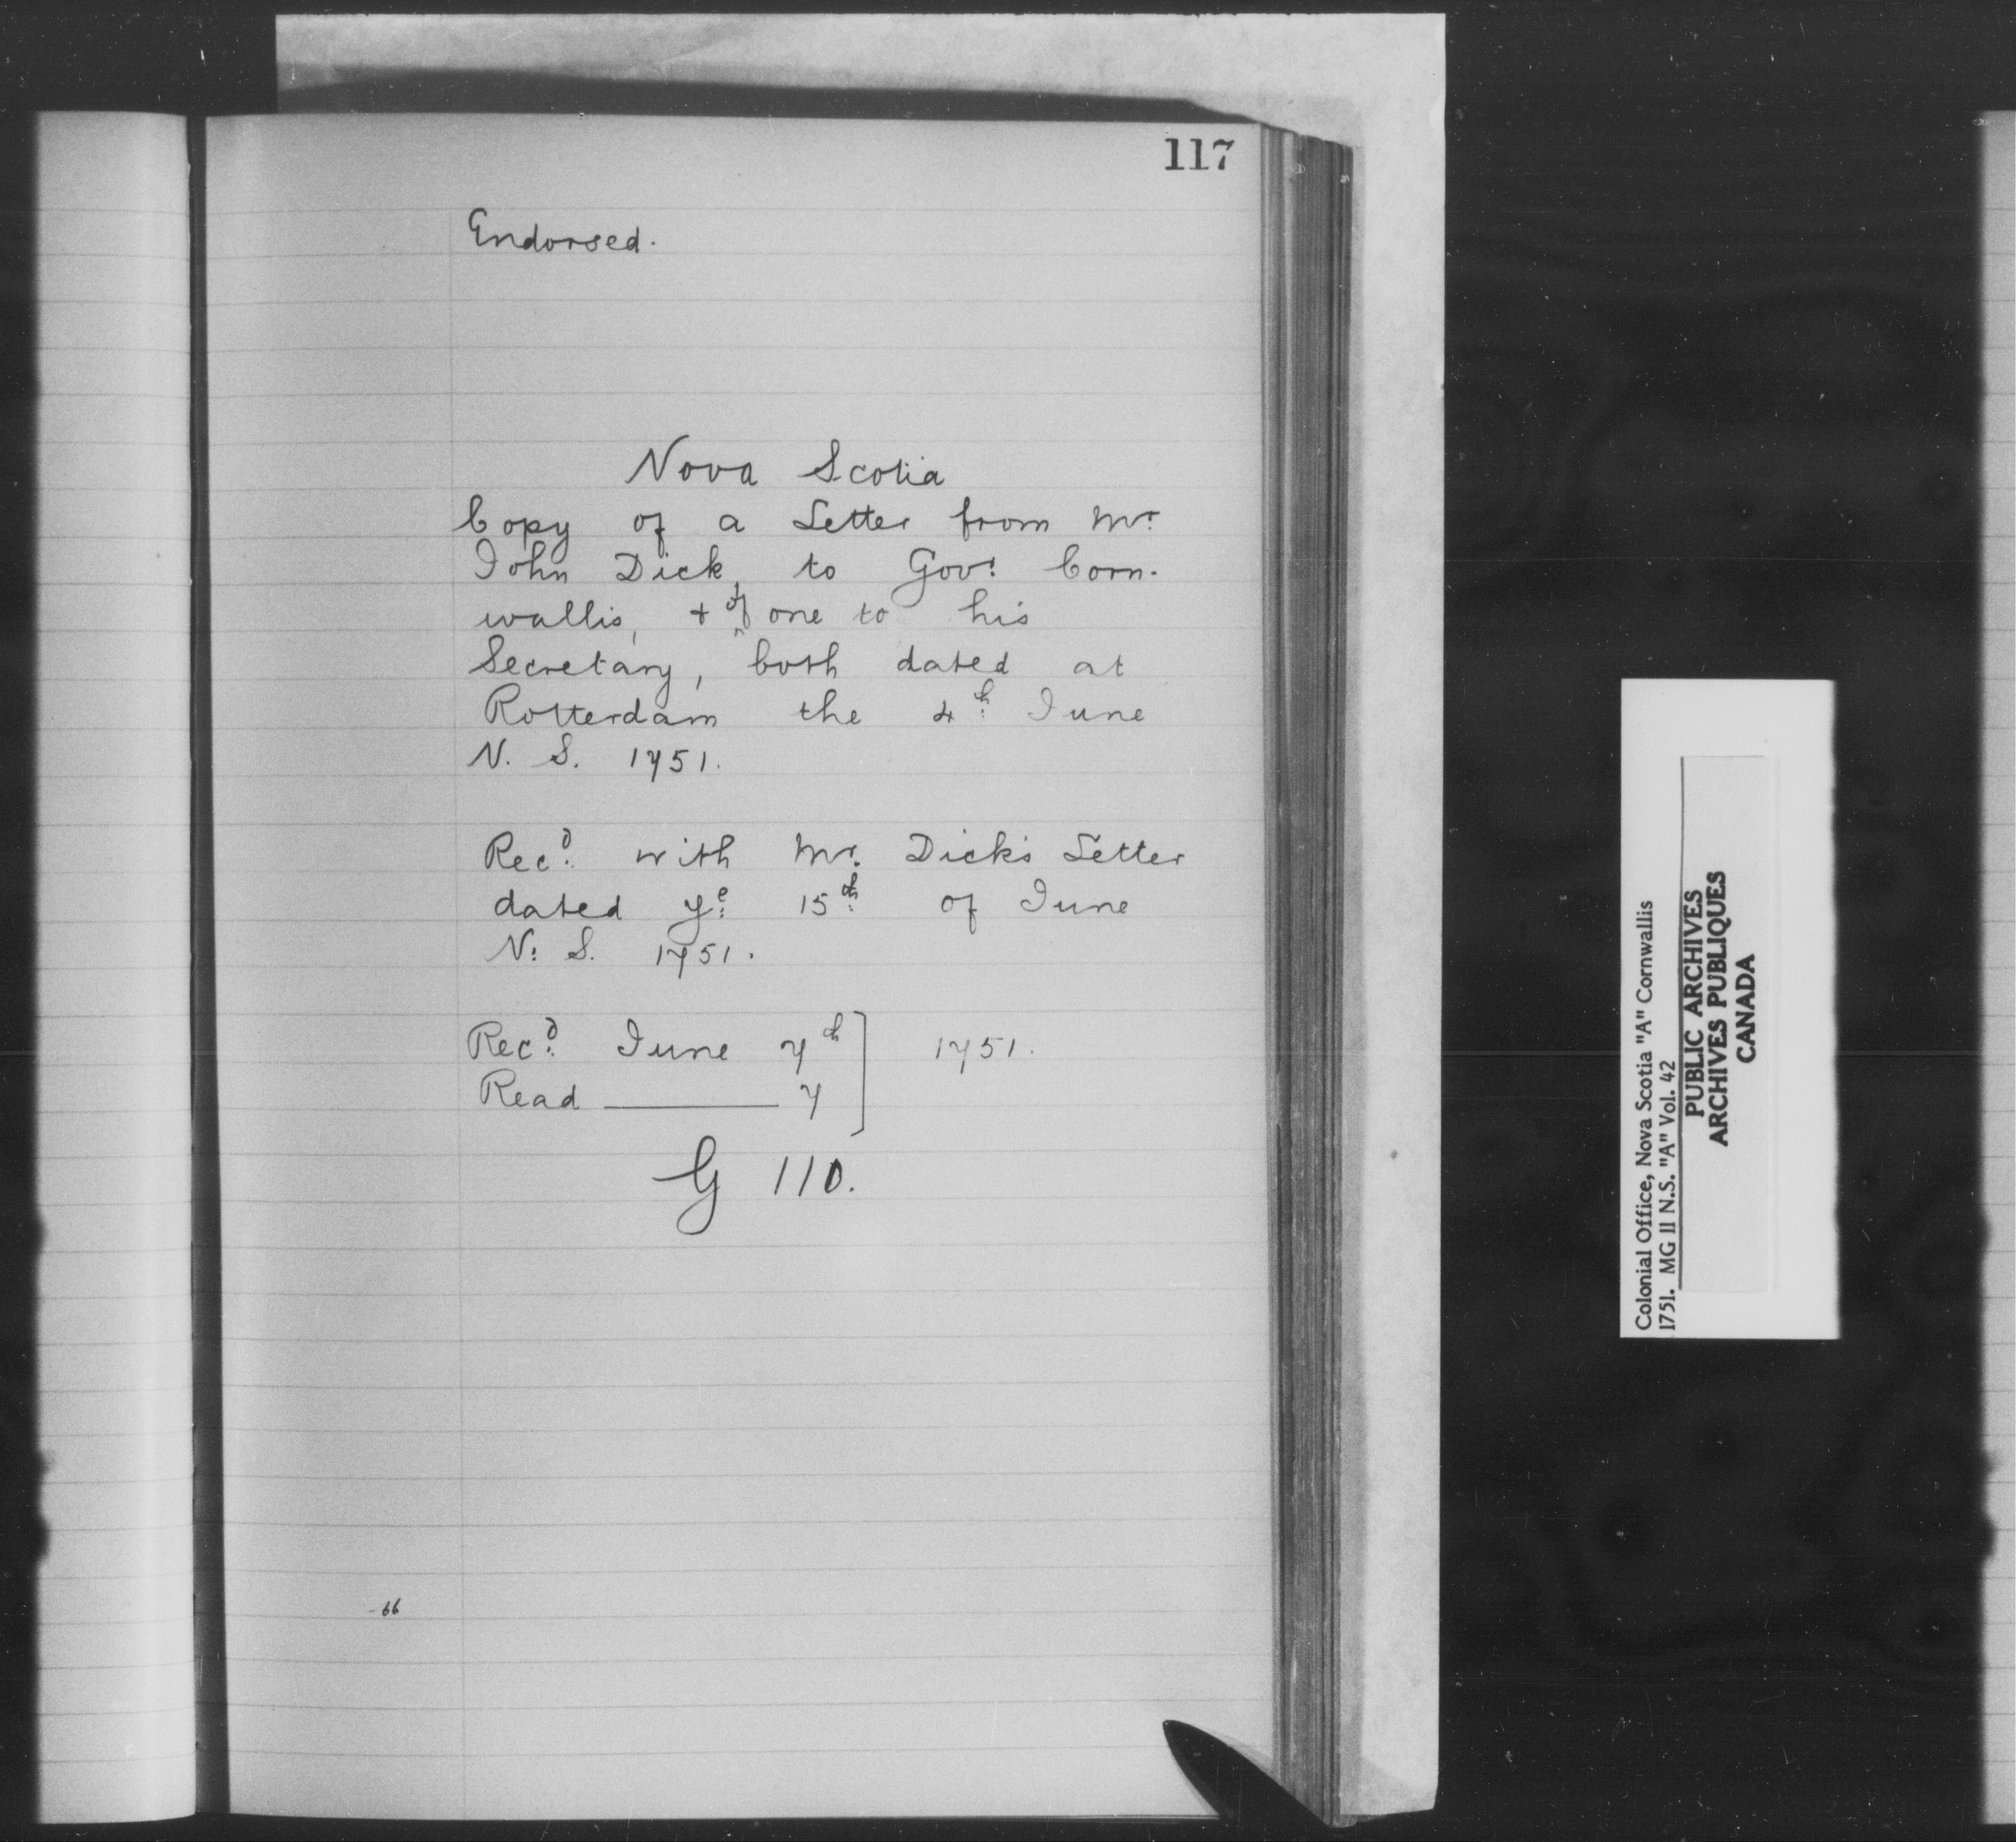 117
Endorsed.
Nova Scotia
Copy of a Letter from Mr.
John Dick, to Govr. Corn-
wallis, + of one to his
Secretary, both dated at
Rotterdam the 4th June
N. S. 1751.
Recd. with Mr. Dick's Letter
dated ye 15th of June
N. S. 1751.
Recd. June 7th ] 1751.
Read ——— 7
G 110.
66
Colonial Office, Nova Scotia "A" Cornwallis
1751. MG 11 N.S. "A" Vol. 42
PUBLIC ARCHIVES
ARCHIVES PUBLIQUES
CANADA